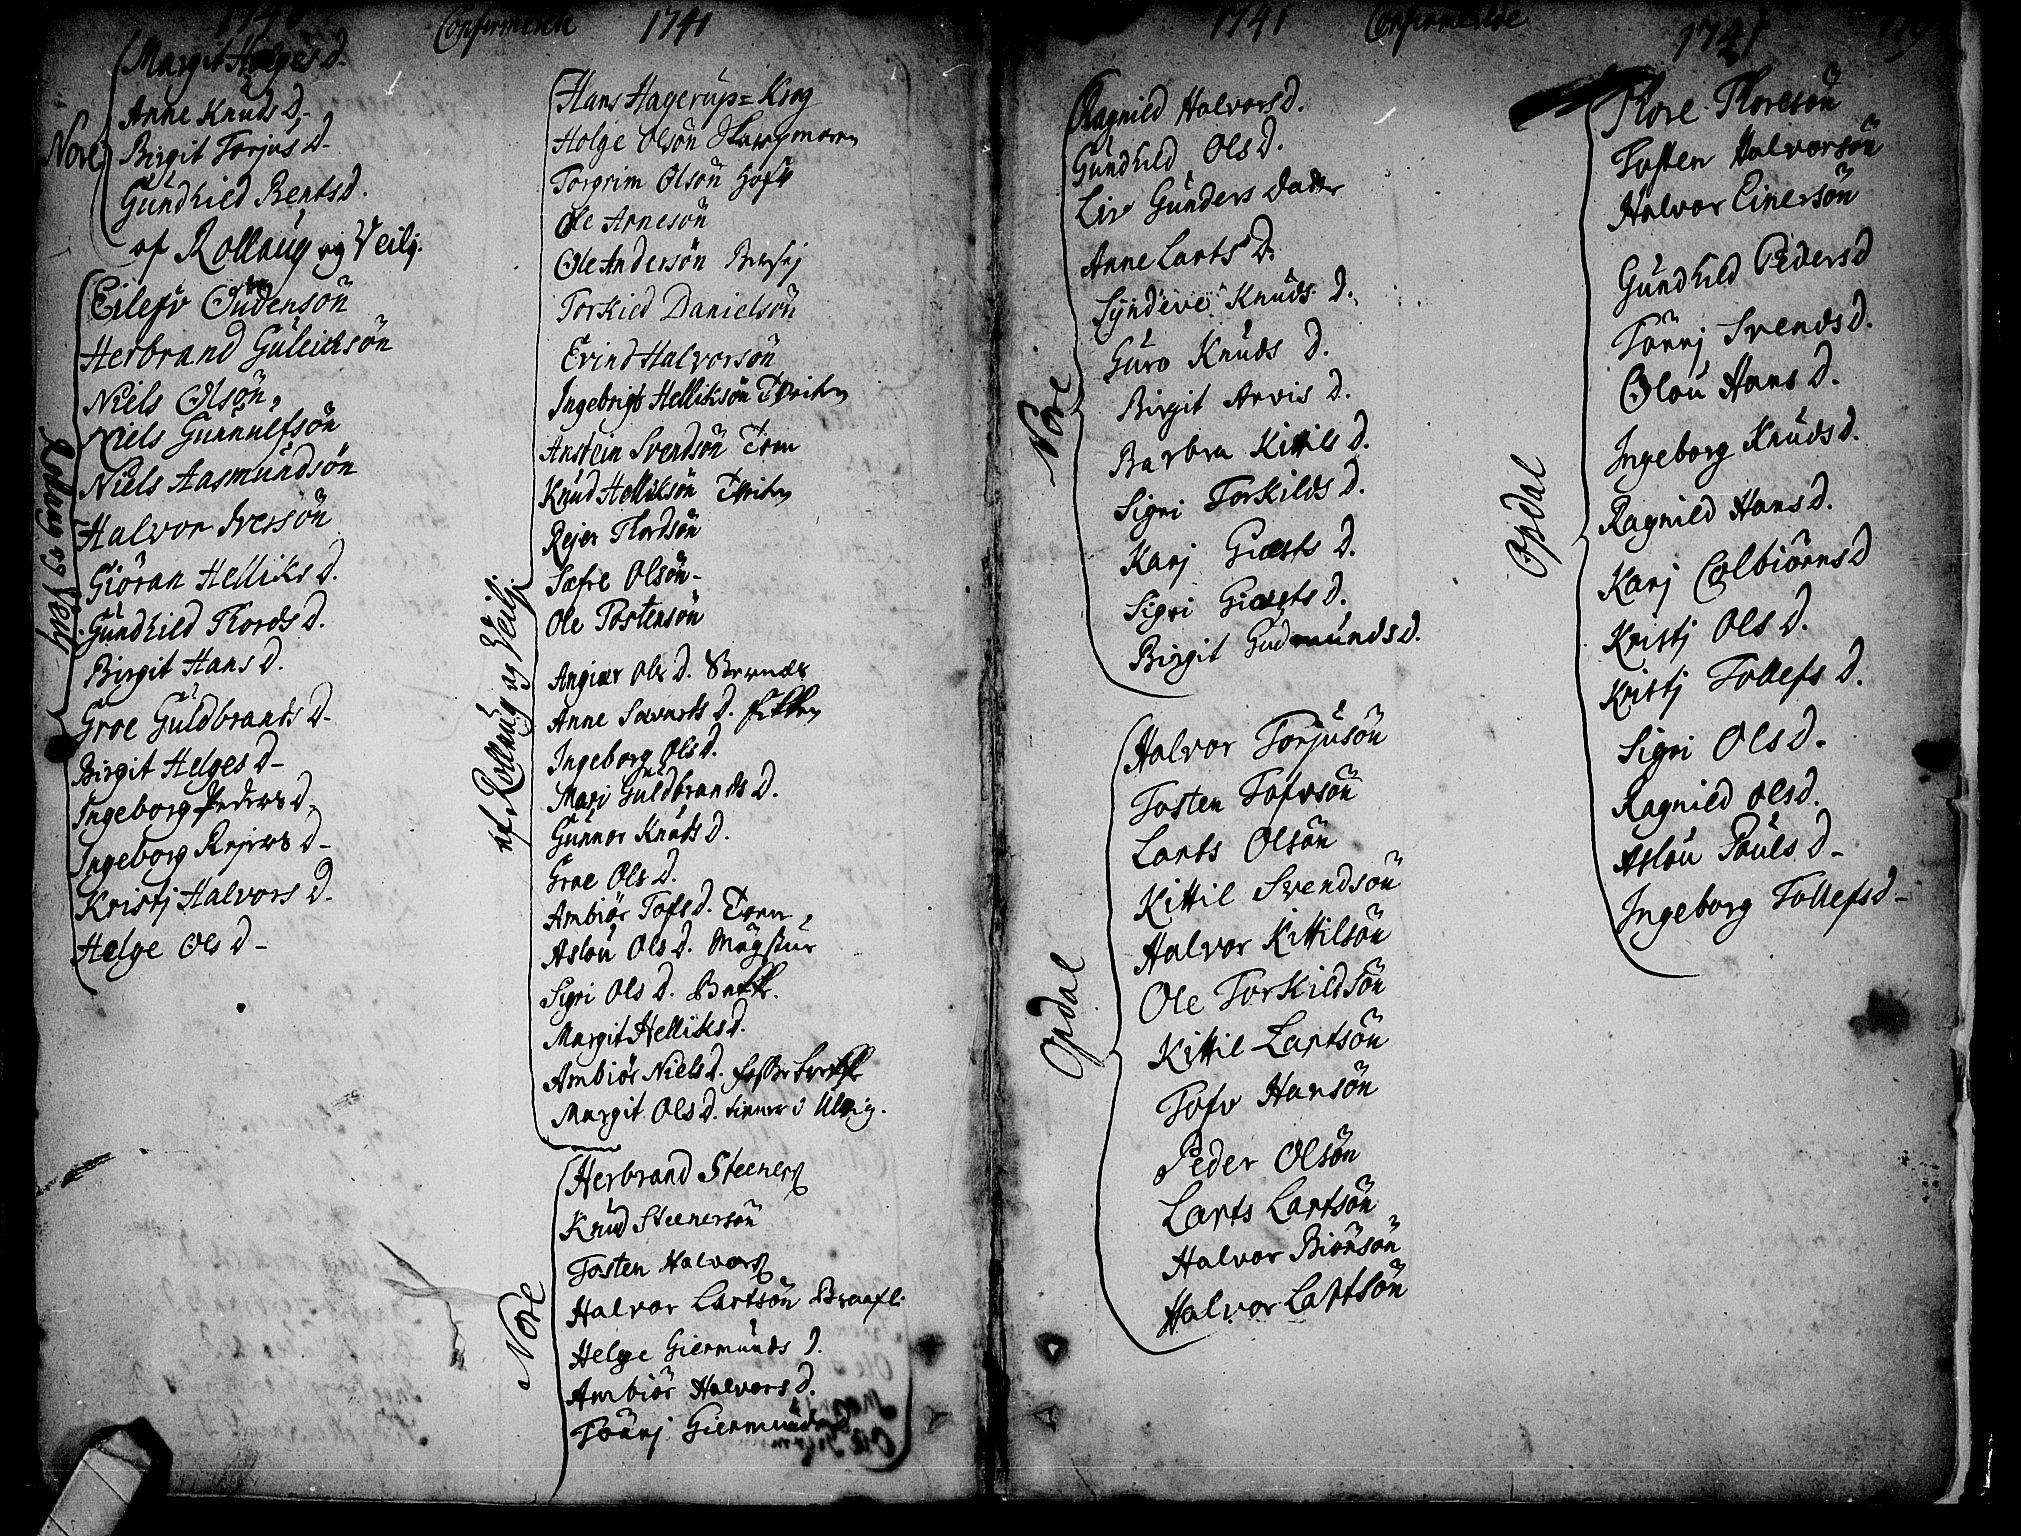 1740
Confirmerede 1741
Nore
Margit Helges D.
Anne Knuds D.
Birgit Torjus D.
Gundhild Bents D.
af Rollaug og Veilj.
Rollaug og Veilj
Eilefv Oudensön
Herbrand Guleichsön
Niels Olsön,
Niels Gunnulfsön
Niels Aasmundsön
Halvor Iversön
Giöran Helliks D.
Gundhild Thords D.
Birgit Hans D.
Groe Guldbrands D.
Birgit Helges D.
Ingeborg Peders D.
Ingeborg Rejers D.
Kristj Halvors D.
Helge Ols D.
af Rollaug og Veilj.
Hans Hagerup = Krog
Holge Olsön
Torgrim Olsön Hoft
Ole Arnesön
Ole Andersön
Torkied Danielsön
Evind Halvorsön
Ingebrigt Helliksön Tveiten
Anstein Svendsön Traa
Knud Helliksön Tveiten
Rejer Thordsön
Sæfre Olsön
Ole Tostensön
Angiær Ols D.
Anne Sævarts D.
Ingeborg Ols D.
Marj Guldbrands D.
Gunnor Knuds D.
Groe Ols D.
Ambiör Tofs D.
Aslou Ols D.
Sigri Ols D.
Margit Helliks D.
Ambiör Niels D.
Margit Ols D. tiener i
Nore
Herbrand Steeners.
Knud Steenersön
Tosten Halvors.
Halvor Lartsön Braafli
Helge Giermunds D.
Ambiör Halvors D.
Tönnj Giermunds D.
1741 Confirmerede 1741 119
Nore
Ragnild Halvors D.
Gundhild Ols D.
Liv Gunders Datter
Anne Larts D.
Syndeve Knuds D.
Guro Knuds D.
Birgit Arvis D.
Barbra Kittils D.
Sigri Torkilds D.
Karj Giæsts D.
Sigri Giæsts D.
Birgit Gudmunds D.
Opdal
Halvor Torjusön
Tosten Tofvsön
Larts Olsön
Kittil Svendsön
Halvor Kittilsön
Ole Torkildsön
Kittil Lartsön
Tofv Hansön
Peder Olsön
Larts Lartsön
Halvor Biönsön
Halvor Lartsön
Opdal
Thore Thoresön
Tosten Halvorsön
Halvor Einersön
Gundhild Peders D
Tönnj Svends D.
Olou Hans D.
Ingeborg Knuds D.
Ragnild Hans D.
Karj Colbiörns D
Kristj Ols D.
Kristj Tollefs D.
Sigri Ols D.
Ragnild Ols D.
Aslou Pouls D.
Ingeborg Tollefs D.